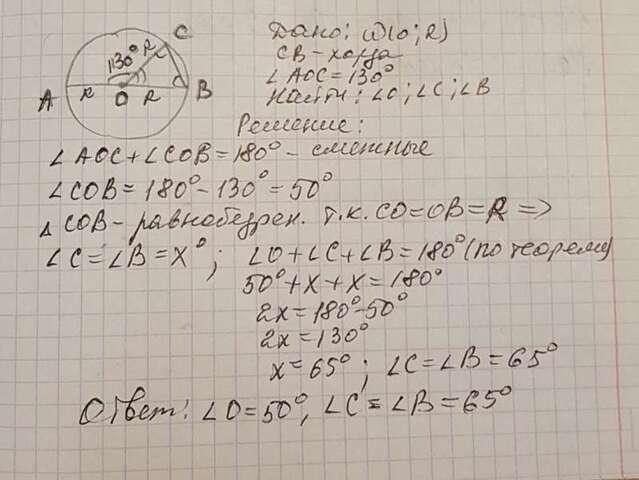 Дано: ω(O; R)
CB - хорда
∠AOC = 130°
Найти: ∠O; ∠C; ∠B
C
130° R
A R O R B
Решение:
∠AOC + ∠COB = 180° - смежные
∠COB = 180° - 130° = 50°
△COB - равнобедрен. т.к. CO = OB = R =>
∠C = ∠B = X°; ∠O + ∠C + ∠B = 180° (по теореме)
50° + x + x = 180°
2x = 180° - 50°
2x = 130°
x = 65°; ∠C = ∠B = 65°
Ответ: ∠O = 50°, ∠C = ∠B = 65°